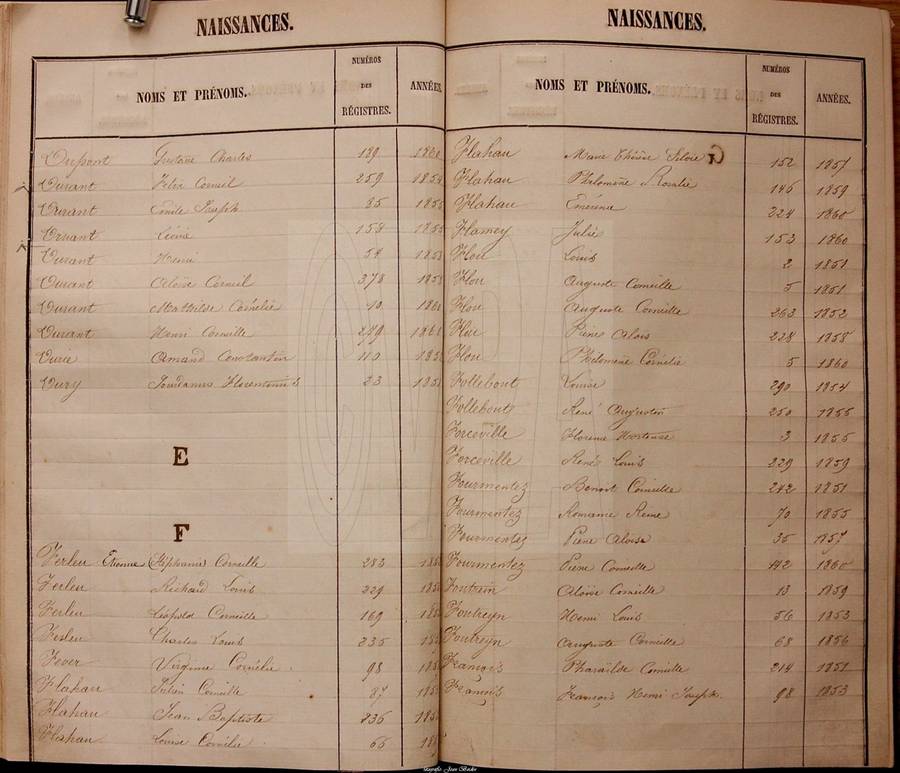 NAISSANCES.
NOMS ET PRÉNOMS. NUMÉROS DES RÉGISTRES. ANNÉES.
Dupont Gustave Charles 139 186
Durant Felix Corneil 259 185
Durant Emile Joseph 35 185
Durant Léonie 158 185
Durant Henri 54 185
Durant Aloïse Corneil 378 185
Durant Mathilde Cornélie 10 186
Durant Henri Corneille 279 186
Dure Amand Constantin 110 185
Dury Florentinus 23 185
E
F
Ferleu Etienne Stéphanis Corneille 283
Ferleu Richard Louis 229
Ferleu Léopold Corneille 169
Ferleu Charles Louis 235
Fever Virginie Cornélie 98
Flahau Julien Corneille 87
Flahau Jean Baptiste 236
Flahau Louise Cornélie 66
NAISSANCES.
NOMS ET PRÉNOMS. NUMÉROS DES RÉGISTRES. ANNÉES.
Flahau Marie Thérèse Silvie G 152 1857
Flahau Philomène Rosalie 146 1859
Flahau Emerence 224 1860
Flamey Julie 153 1860
Flou Louis 2 1851
Flou Auguste Corneille 5 1851
Flou Auguste Corneille 263 1852
Flou Pierre Alois 228 1858
Flou Philomène Cornélie 5 1860
Follebout Louise 290 1854
Follebout René Augustin 250 1855
Forceville Florence Hortense 3 1855
Forceville René Louis 229 1859
Fourmentez Benoit Corneille 242 1851
Fourmentez Romanie Reine 70 1855
Fourmentez Pierre Aloise 35 1857
Fourmentez Pierre Corneille 1860
Fontrein Aloïse Corneille 13 1859
Fontreyn Henri Louis 56 1853
Fontreyn Auguste Corneille 68 1856
François Pharaïlde Corneille 214 1851
François François Henri Joseph 98 1853